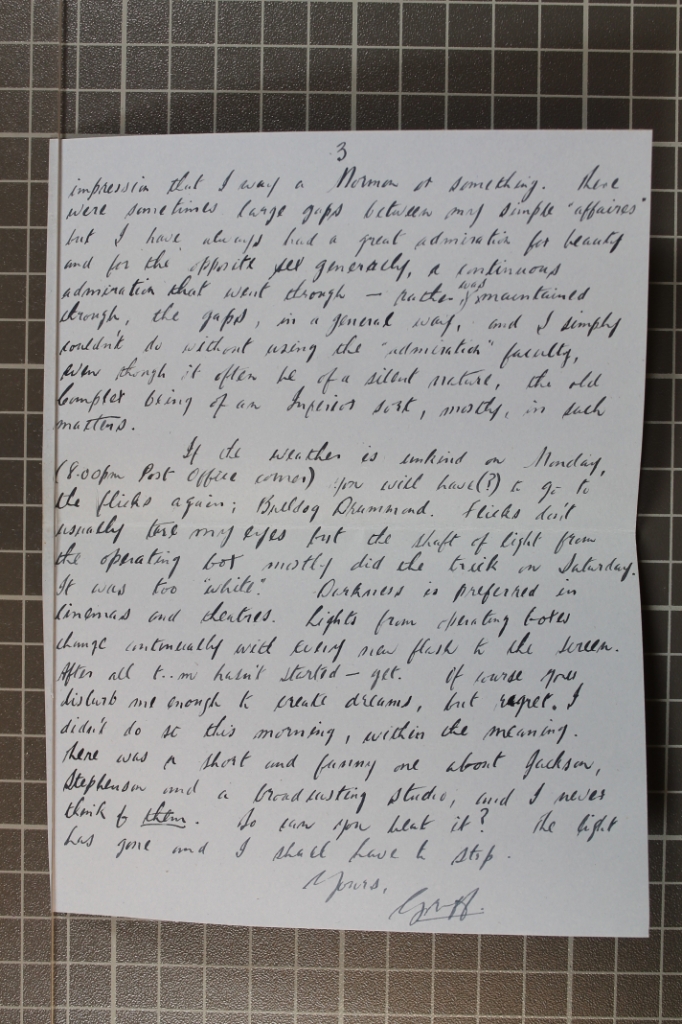 3
impression that I was a Mormon or something. There
were sometimes large gaps between my simple "affaires"
but I have always had a great admiration for beauty
and for the opposite sex generally, a continuous
admiration that went through — rather was maintained
through, the gaps, in a general way, and I simply
couldn't do without using the "admiration" faculty,
even though it often be of a silent nature, the old
Complex being of an Inferior sort, mostly, in such
matters.
If the weather is unkind on Monday,
(8.00pm Post Office corner) you will have(?) to go to
the flicks again; Bulldog Drummond. Flicks don't
usually tire my eyes but the shaft of light from
the operating box mostly did the trick on Saturday.
It was too "white". Darkness is preferred in
cinemas and theatres. Lights from operating boxes
change continually with every new flash to the screen.
After all t..m hasn't started — yet. Of course you
disturb me enough to create dreams, but regret I
didn't do so this morning, within the meaning.
There was a short and funny one about Jackson,
Stephenson and a broadcasting studio, and I never
think of them. So can you beat it? The light
has gone and I shall have to stop.
Yours,